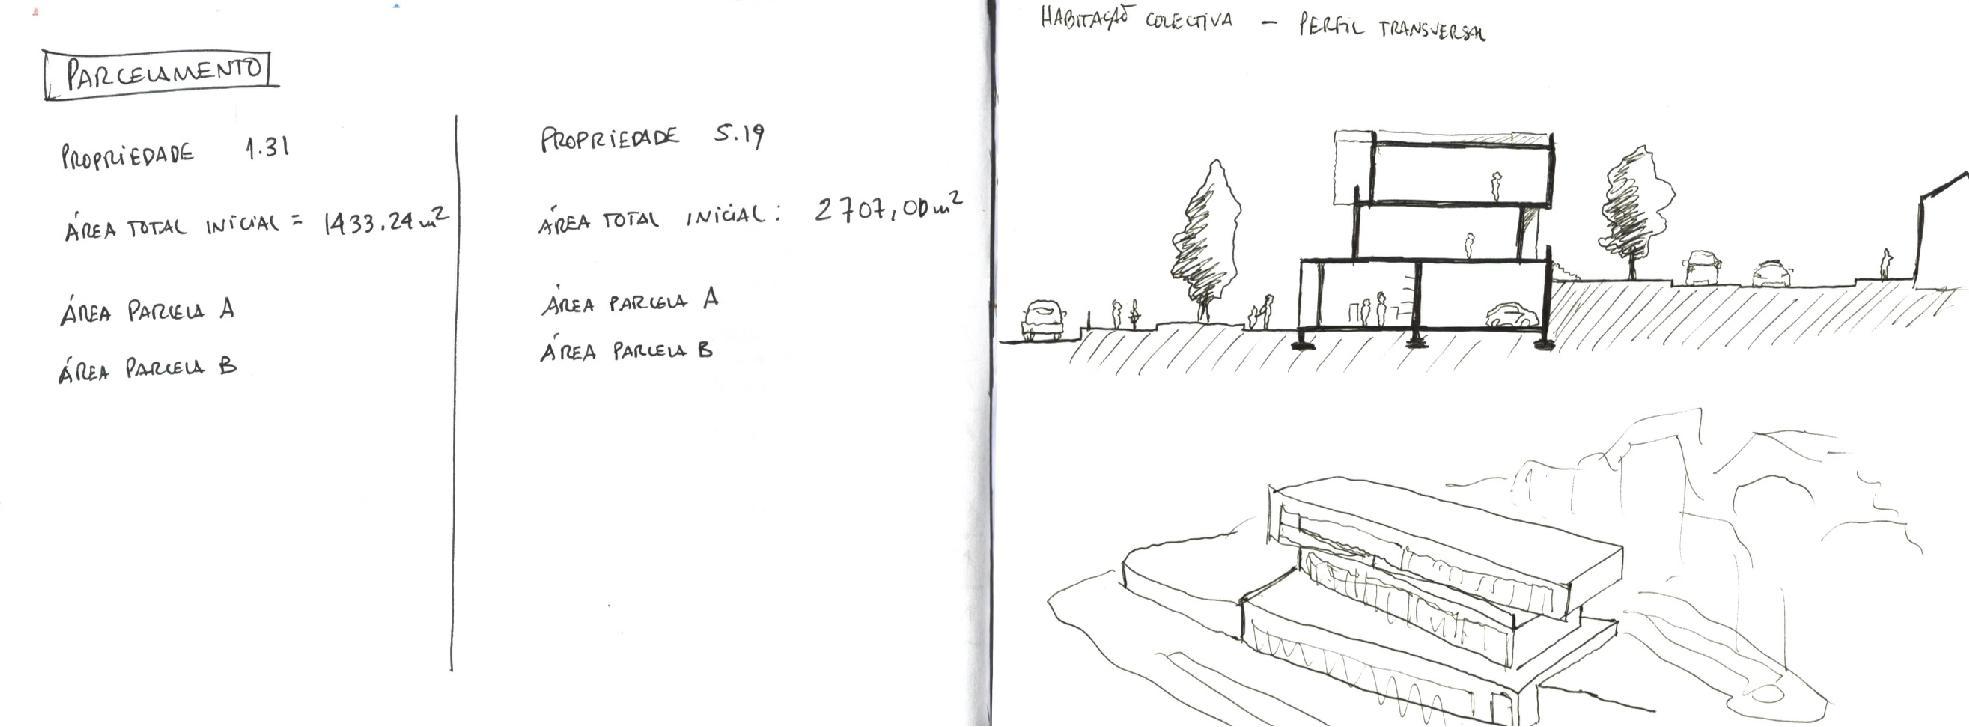 PARCELAMENTO
PROPRIEDADE 1.31
ÁREA TOTAL INICIAL = 1433.24 m²
ÁREA PARCELA A
ÁREA PARCELA B
PROPRIEDADE 5.19
ÁREA TOTAL INICIAL : 2707,00 m²
ÁREA PARCELA A
ÁREA PARCELA B
HABITAÇÃO COLECTIVA - PERFIL TRANSVERSAL